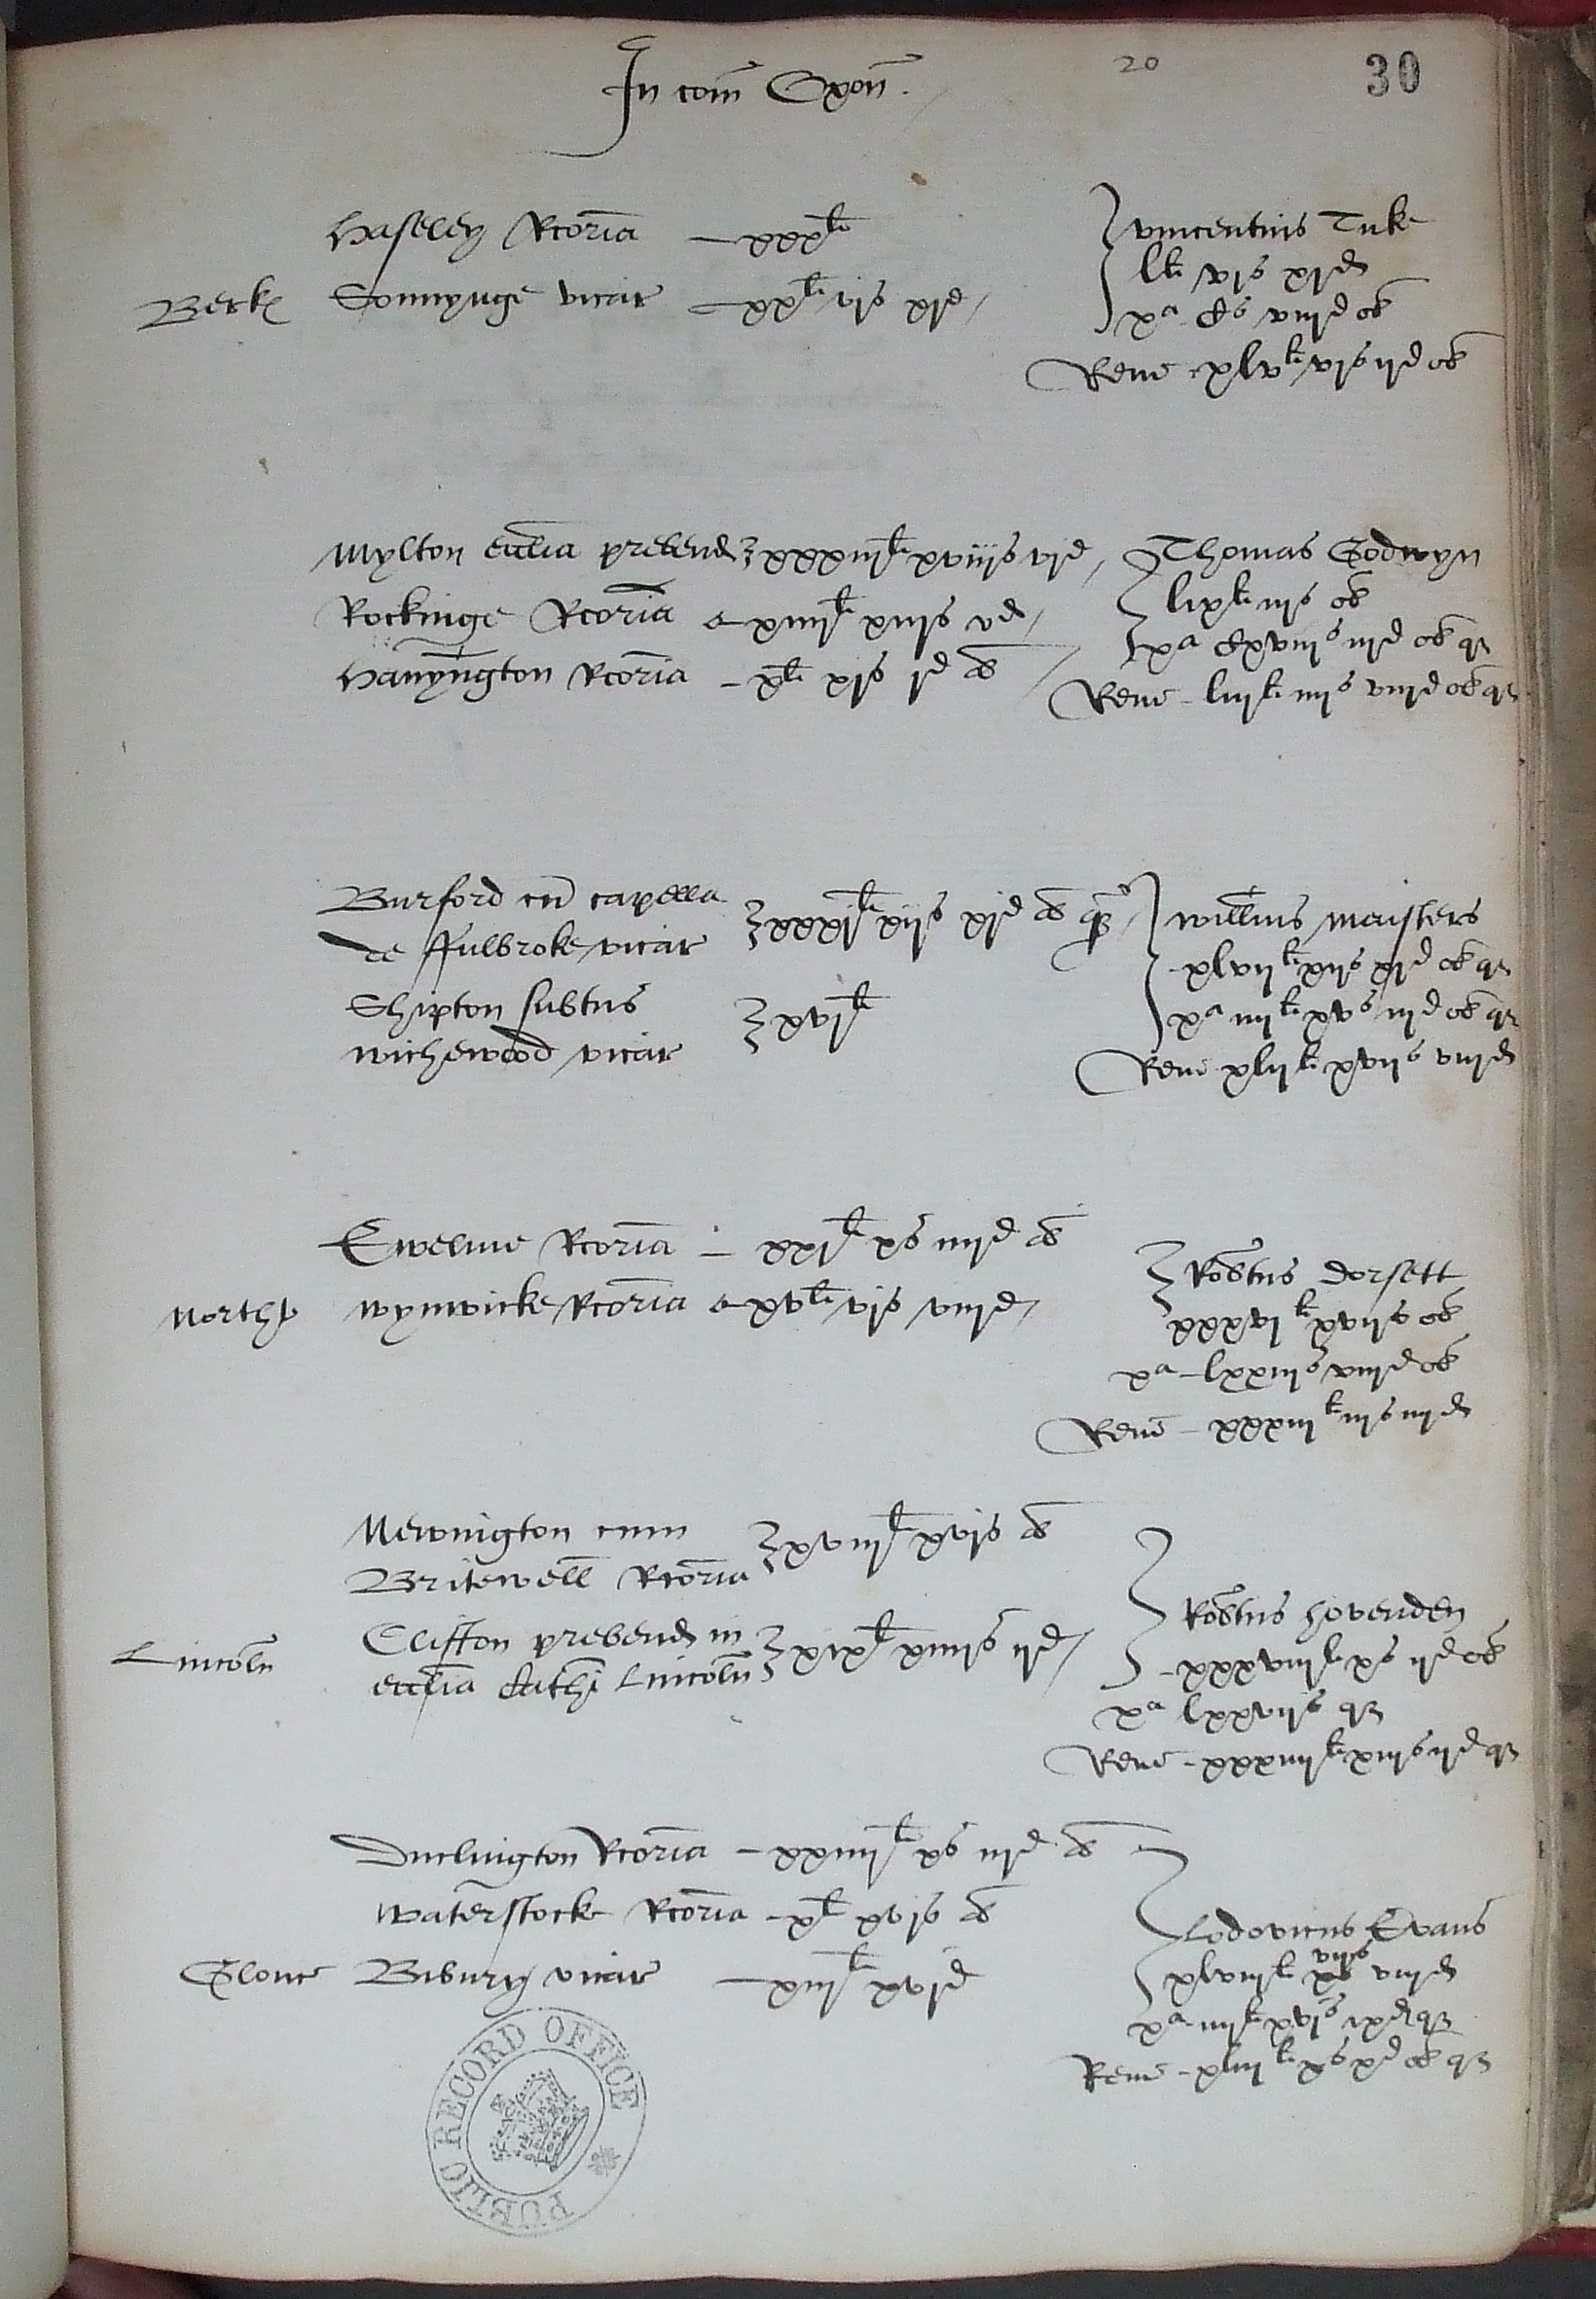 20
30
In com Oxon.
Haseley Rcoria — xxx li
Berk Sonnynge vicar — xx li vjs xjd
vincentius Tuke
l li vjs xjd
xa cs viijd ob
Rem xlv li vjs ijd ob
Mylton ecclia prebend xxxiij li xviijs vjd
Rockinge Rcoria xiiij li xiijs vd
Hanyngton Rcoria — x li xjs jd ob
Thomas Godwyn
lix li iijs ob
xa cxviijs iijd ob qr
Rem — liij li iiijs viijd ob qr
Burford cu capella
de ffulbroke vicar xxxj li xijs xjd ob qr
Shipton subtus
wichewood vicar xvj li
willms maisters
xlvij li xijs xjd ob qr
xa iiij li xvs iijd ob qr
Rem xlij li xvijs viijd
Ewelme Rcoria — xxj li xs iiijd ob
Northt wynwicke Rcoria xv li vjs viijd
Robtus Dorsett
xxxvj li xvijs ob
xa — lxxiijs viijd ob
Rem — xxxiij li iijs iiijd
Newington cum
Britewell Rcoria xviij li xvjs ob
Lincoln Clifton prebend in
ecclia Cath Lincoln xix li xiiijs ijd
Robtus hovenden
xxxviij li xs ijd ob
xa lxxvijs qr
Rem — xxxiiij li xiijs ijd qr
Duclington Rcoria — xxiiij li xs iijd ob
waterstock Rcoria — x li xvjs ob
Glouc Bibury vicar — xiij li xvjd
Lodovicus Evans
xlviij li vijs viijd
xa iiij li xvjs ixd qr
Rem — xliij li xs xd ob qr
PUBLIC RECORD OFFICE